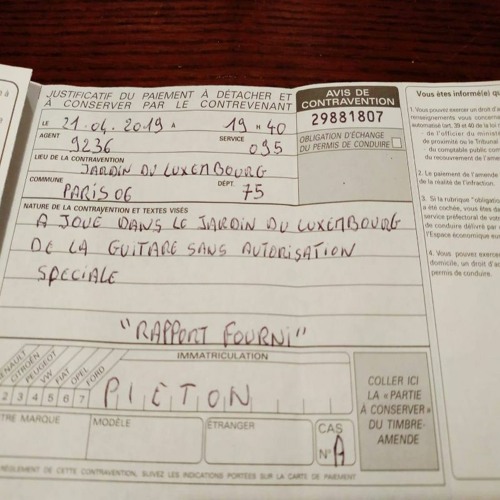 JUSTIFICATIF DU PAIEMENT À DÉTACHER ET
À CONSERVER PAR LE CONTREVENANT
LE 21.04.2019 A 19 H 40
AGENT 9236 SERVICE 095
LIEU DE LA CONTRAVENTION
JARDIN DU LUXEMBOURG
COMMUNE PARIS 06 DÉPT. 75
NATURE DE LA CONTRAVENTION ET TEXTES VISÉS
A JOUE DANS LE JARDIN DU LUXEMBOURG
DE LA GUITARE SANS AUTORISATION
SPECIALE
"RAPPORT FOURNI"
AVIS DE
CONTRAVENTION
29881807
OBLIGATION D'ÉCHANGE
DU PERMIS DE CONDUIRE
IMMATRICULATION
RENAULT
CITROËN
PEUGEOT
VW
FIAT
OPEL
FORD
2 3 4 5 6 7
PIETON
TRE MARQUE
MODÈLE
ÉTRANGER
CAS
N° A
COLLER ICI
LA « PARTIE
À CONSERVER »
DU TIMBRE-
AMENDE
RÈGLEMENT DE CETTE CONTRAVENTION, SUIVEZ LES INDICATIONS PORTÉES SUR LA CARTE DE PAIEMENT
Vous êtes informé(e) qu
1. Vous pouvez exercer un droit d'
renseignements, vous concernant
autorisé (art. 39 et 40 de la loi
- de l'officier du ministè
de proximité ou le Tribunal
- du comptable public com
du recouvrement de l'amen
2. Le paiement de l'amende
de la réalité de l'infraction.
3. Si la rubrique "obligatio
a été cochée, vous êtes de
service préfectoral de votre
de conduire délivré par
l'Espace économique eu
4. Vous pouvez exercer
domicile, un droit d'ac
permis de conduire.